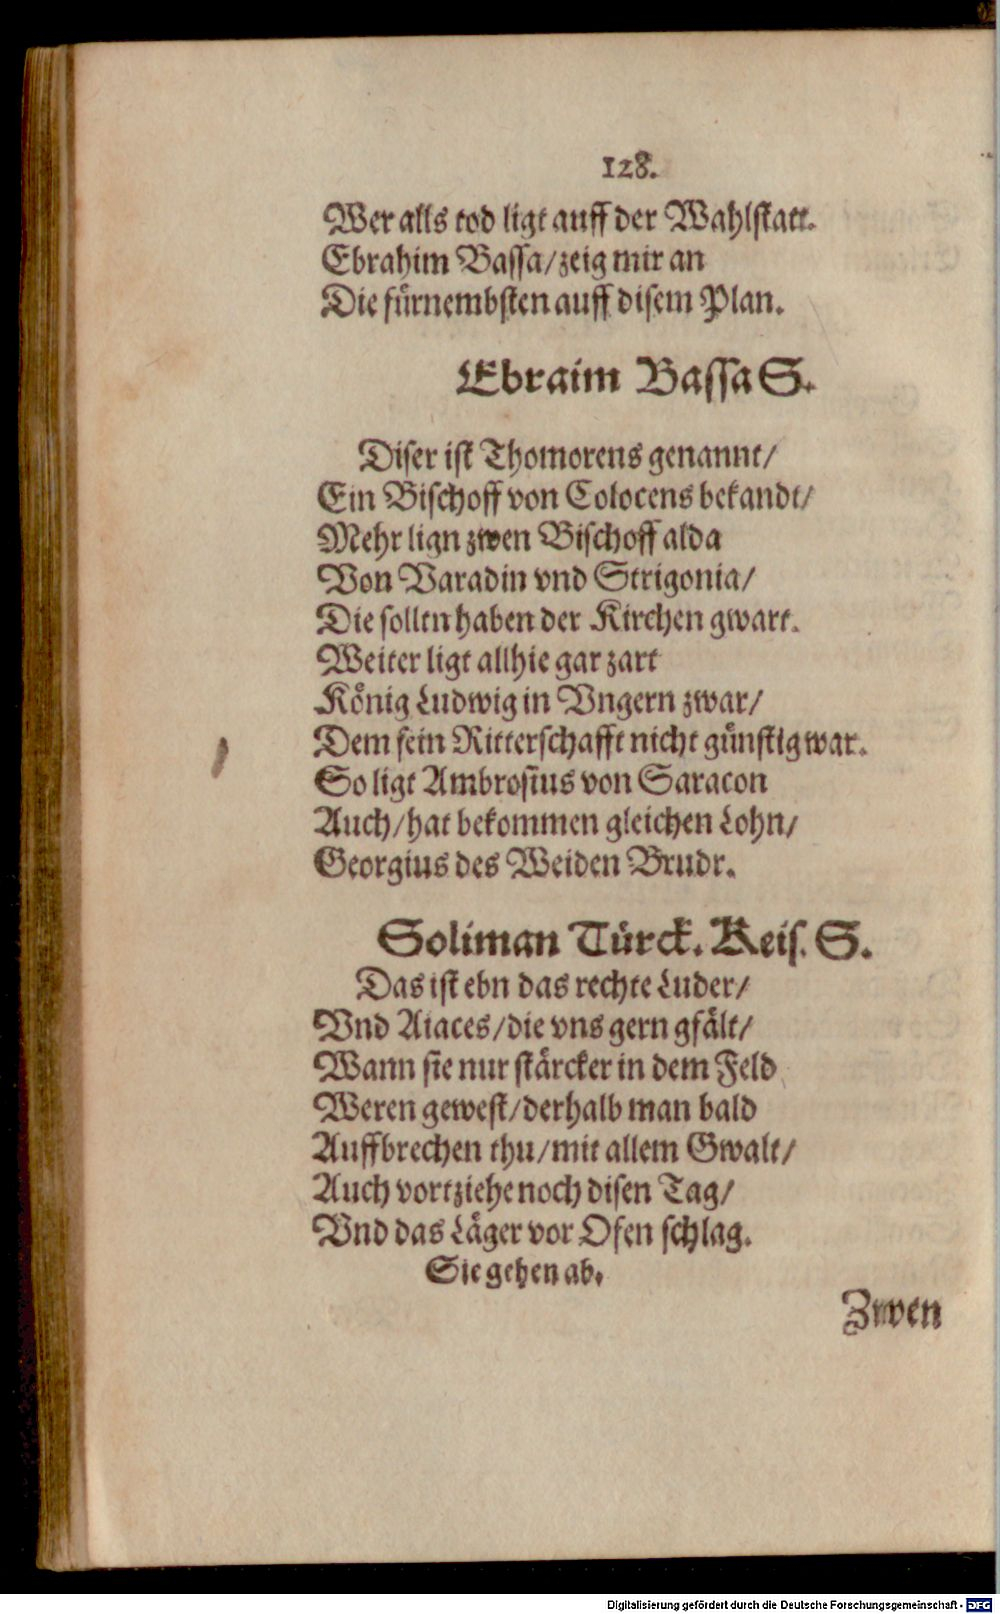 128.
Wer alls tod ligt auff der Wahlstatt.
Ebrahim Bassa/zeig mir an
Die fürnembsten auff disem Plan.
Ebraim Bassa S.
Diser ist Thomorens genannt/
Ein Bischoff von Colocens bekandt/
Mehr lign zwen Bischoff alda
Von Varadin vnd Strigonia/
Die solltn haben der Kirchen gwart.
Weiter ligt allhie gar zart
König Ludwig in Vngern zwar/
Dem sein Ritterschafft nicht günstig war.
So ligt Ambrosius von Saracon
Auch/hat bekommen gleichen Lohn/
Georgius des Weiden Brudr.
Soliman Türck. Keis. S.
Das ist ebn das rechte Luder/
Vnd Aiaces/die vns gern gfält/
Wann sie nur stärcker in dem Feld
Weren gewest/derhalb man bald
Auffbrechen thu/mit allem Gwalt/
Auch vortziehe noch disen Tag/
Vnd das Läger vor Ofen schlag.
Sie gehen ab.
Zwen
Digitalisierung gefördert durch die Deutsche Forschungsgemeinschaft - DFG